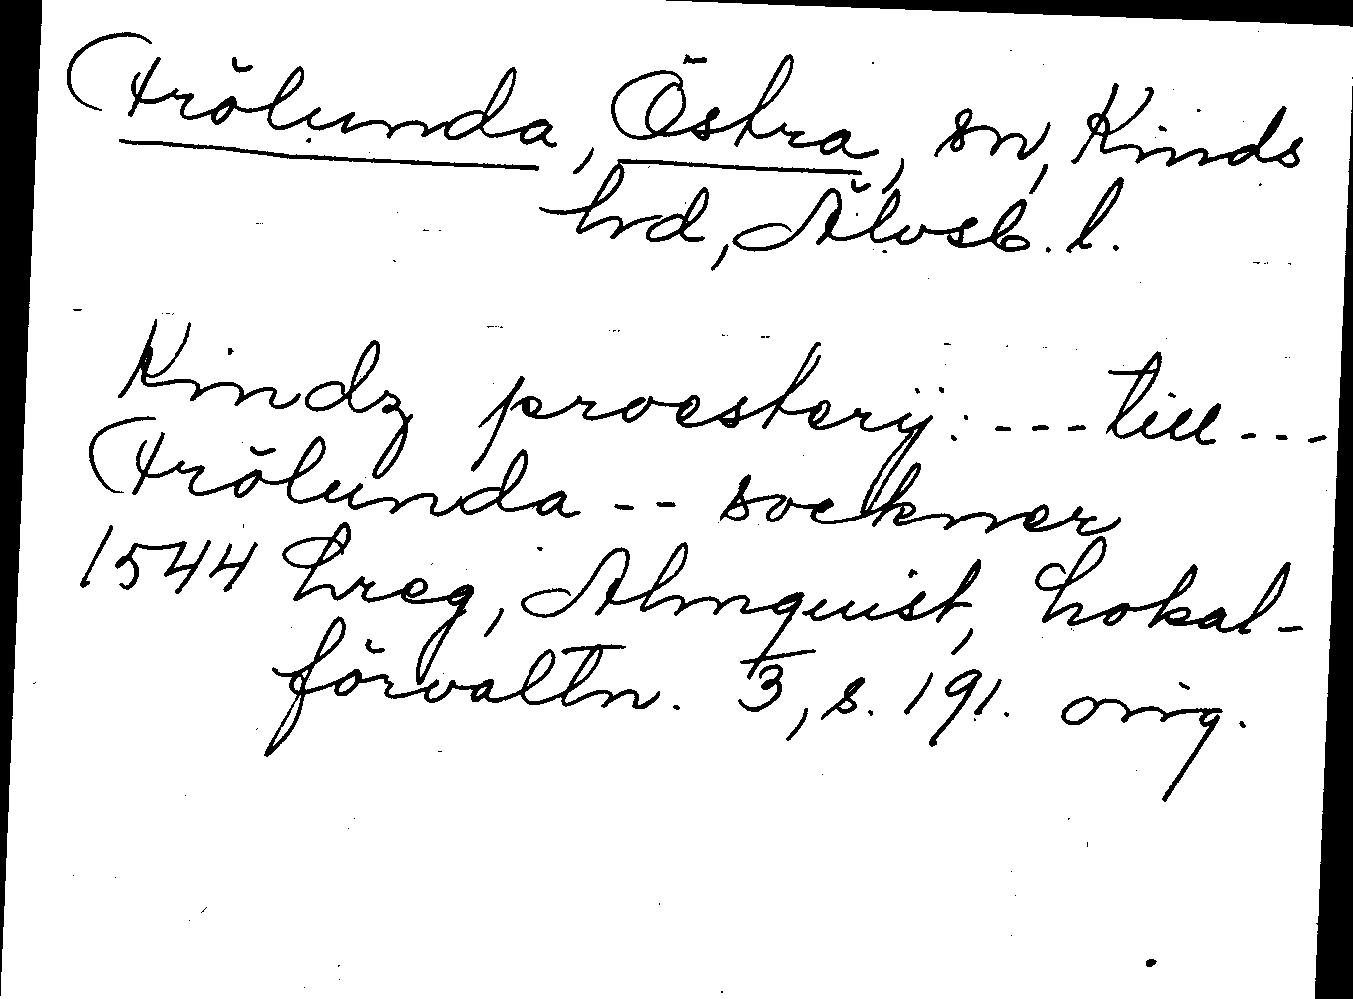 Frölunda, Östra, sn, Kinds
hrd, Älvsb. l.
Kindz proesterij: --- till ---
Frölunda -- sockner
1544 hreg, Almquist, Lokal-
förvaltn. 3, s. 191. orig.